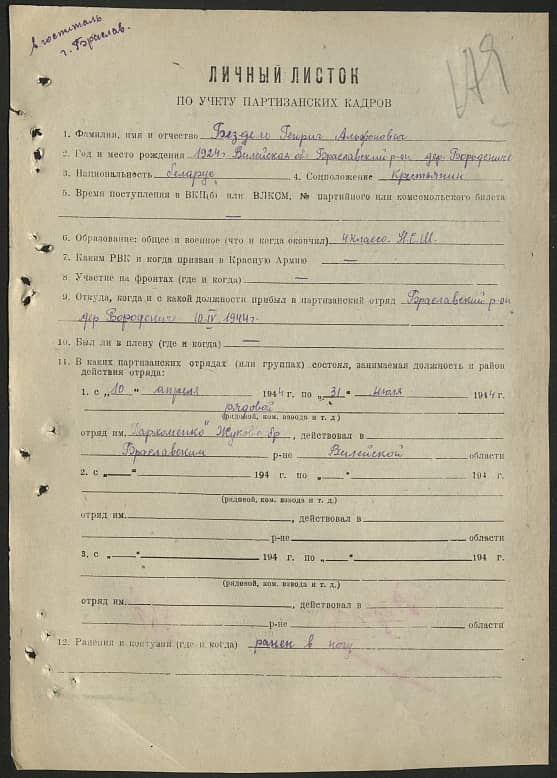 в госпиталь
г. Браслав.
ЛИЧНЫЙ ЛИСТОК
ПО УЧЕТУ ПАРТИЗАНСКИХ КАДРОВ
1. Фамилия, имя и отчество Бездело Генрих Альфонович
2. Год и место рождения 1924г Вилейская об. Браславский р-он дер Вороденичи
3. Национальность беларус 4. Соцположение Крестьянин
5. Время поступления в ВКП(б) или ВЛКСМ, № партийного или комсомольского билета
—
6. Образование: общее и военное (что и когда окончил) 4 класса.
7. Каким РВК и когда призван в Красную Армию —
8. Участие на фронтах (где и когда) —
9. Откуда, когда и с какой должности прибыл в партизанский отряд Браславский р-он
дер Вороденичи 10.IV 1944г.
10. Был ли в плену (где и когда) —
11. В каких партизанских отрядах (или группах) состоял, занимаемая должность и район
действия отряда:
1. с „10“ апреля 1944 г. по „31“ июля 1944 г.
рядовой
(рядовой, ком. взвода и т. д.)
отряд им. "Пархоменко" Жукова бр, действовал в
Браславским р-не Вилейской области
2. с „—“ 194 г. по „—“ 194 г.
(рядовой, ком. взвода и т. д.)
отряд им. , действовал в
р-не области
3. с „—“ 194 г. по „—“ 194 г.
(рядовой, ком. взвода и т. д.)
отряд им. , действовал в
р-не области
12. Ранения и контузии (где и когда) ранен в ногу